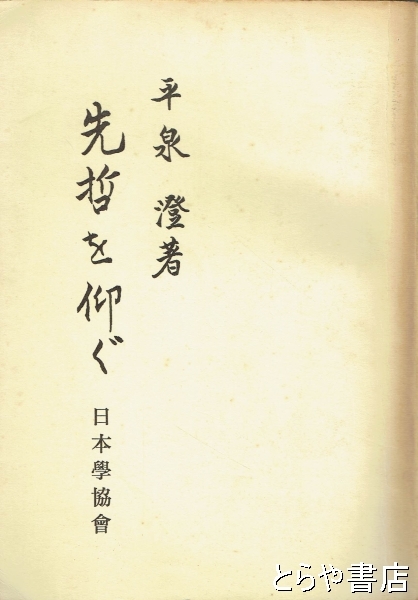 平泉 澄著
先哲を仰ぐ
日本學協會
とらや書店